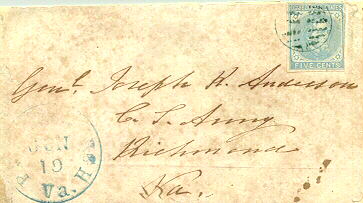 FIVE CENTS
Genl. Joseph R. Anderson
C. S. Army
Richmond
Va.
JUN
19
Va.